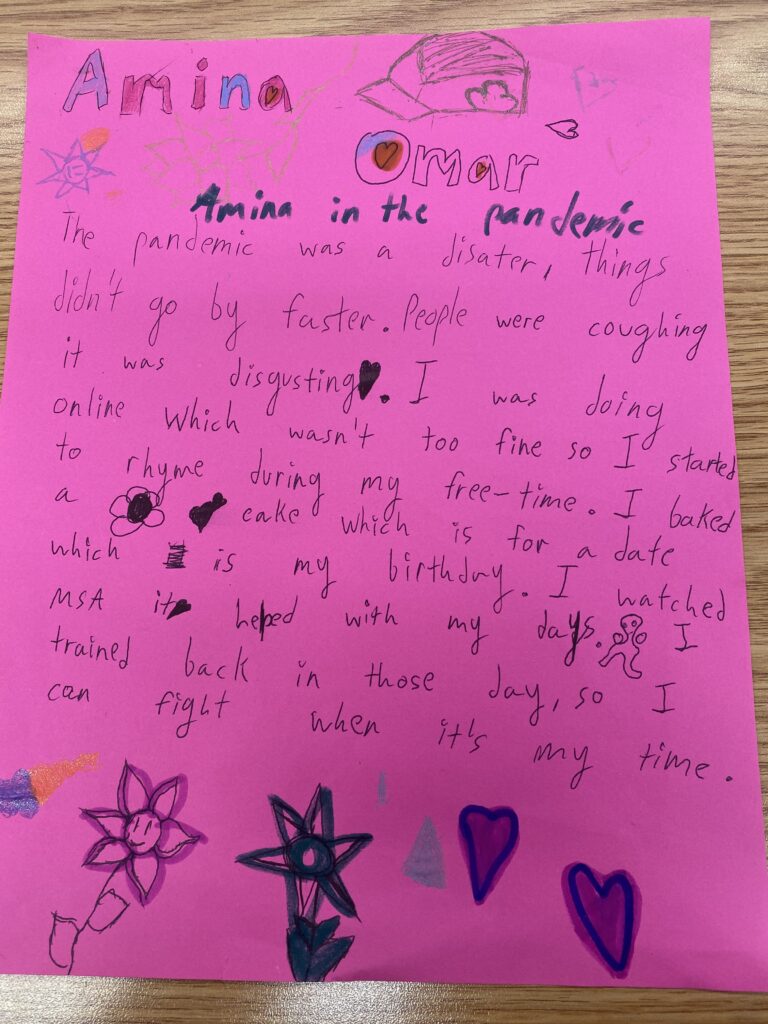 Amina
Omar
Amina in the pandemic
The pandemic was a disater, things
didn't go by faster. People were coughing
it was disgusting. I was doing
online which wasn't too fine so I started
to rhyme during my free-time. I baked
a cake which is for a date
which is my birthday. I watched
MSA it helped with my days. I
trained back in those day, so I
can fight when it's my time.